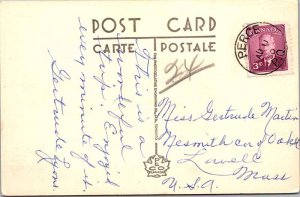 POST CARD
CARTE POSTALE
This is a
wonderful
trip. Enjoy
every minute of it.
Gertrude Lyons.
24
PERCE
P.Q.
CANADA
3
Miss Gertrude Martin
Nesmith and Oak
Lowell
Mass
U.S.A.